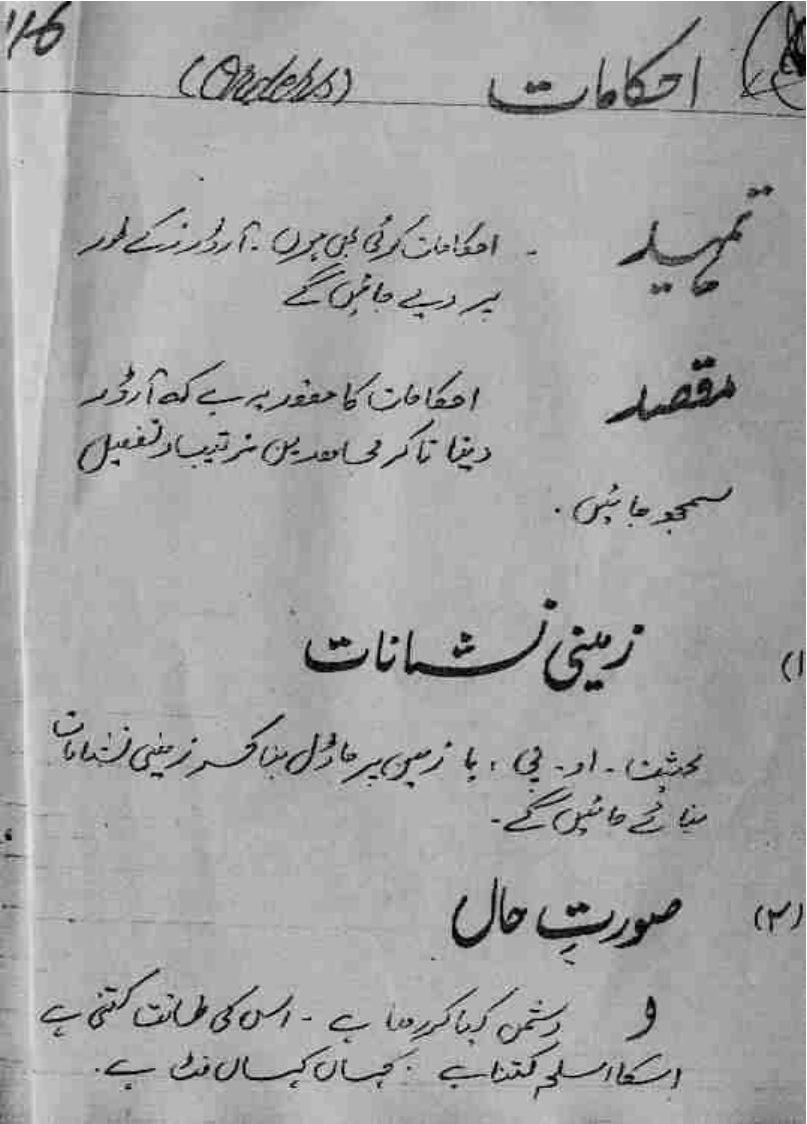 116
احکامات (Orders)
تمہید - احکامات کوئی بھی ہوں۔ آرڈرز کے طور
پر دیے جائیں گے
مقصد احکامات کا مقصد یہ ہے کہ آرڈر
دینا تاکہ مجاہدین ترتیب اور تفصیل
سمجھ جائیں۔
(۱ زمینی نشانات
او۔ پی، یا زمین پر ماڈل بنا کر زمینی نشانات
بتائے جائیں گے۔
(۲) صورتِ حال
و دشمن کیا کر رہا ہے۔ اس کی طاقت کتنی ہے
اسکا اسلحہ کتنا ہے۔ کہاں کہاں فٹ ہے۔